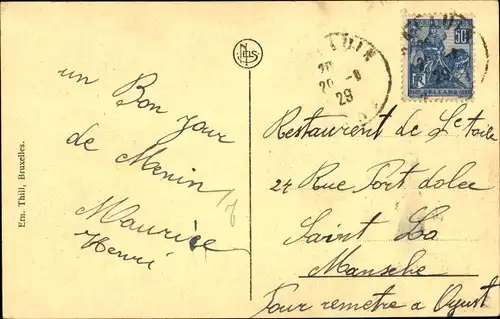 un Bon Jour
de Menin
Maurice
Henri
Ern. Thill, Bruxelles.
NELS
LUIN
20
20 -8
29
50c
ORLEANS
Restaurent de L'etoile
24 Rue Port dolee
Saint Lo
Mansche
Pour remetre a Ogust